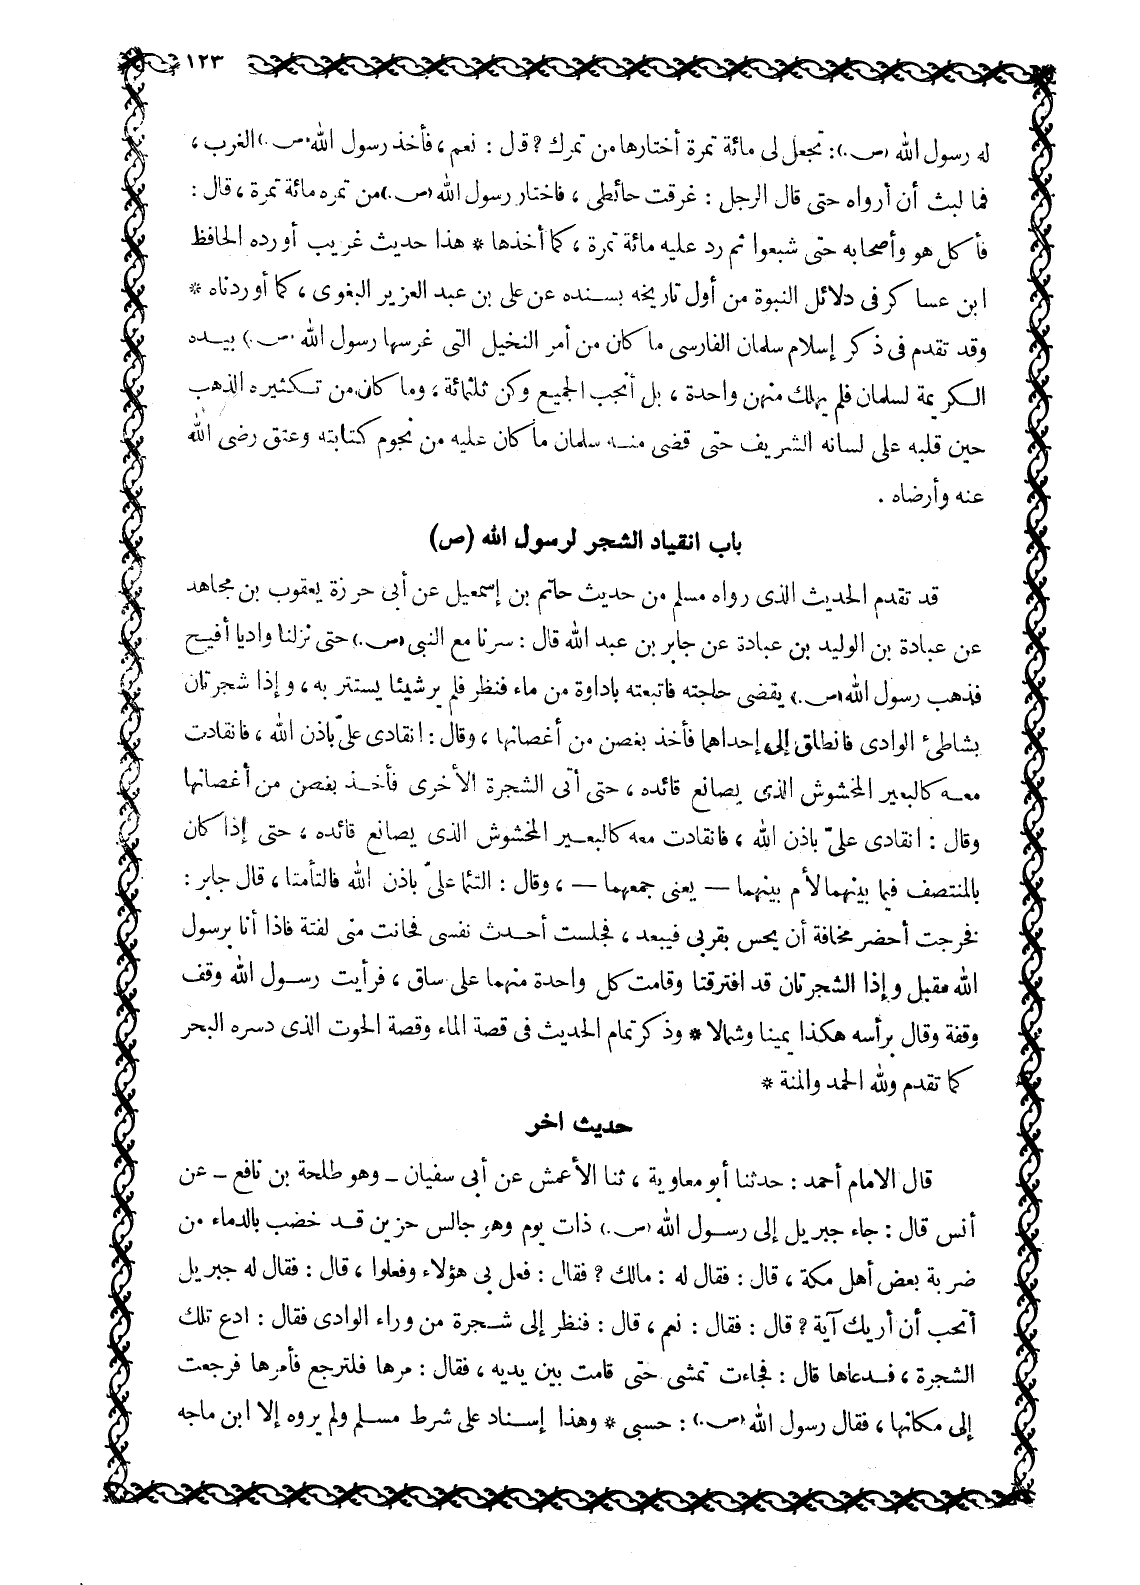 ١٢٣
له رسول الله (ص.): تجعل لى مائة تمرة أختارها من تمرك ? قال : نعم ، فأخذ رسول الله (ص.) الغرب ،
فما لبث أن أرواه حتى قال الرجل : غرقت حائطى ، فاختار رسول الله (ص.) من تمره مائة تمرة ، قال :
فأكل هو وأصحابه حتى شبعوا ثم رد عليه مائة تمرة ، كما أخذها * هذا حديث غريب أورده الحافظ
ابن عساكر فى دلائل النبوة من أول تاريخه بسنده عن على بن عبد العزيز البغوى ، كما أوردناه *
وقد تقدم فى ذكر إسلام سلمان الفارسى ما كان من أمر النخيل التى غرسها رسول الله (ص.) بيده
الكريمة لسلمان فلم يهلك منهن واحدة ، بل أنجب الجميع وكن ثلثمائة ، وما كان من تكثيره الذهب
حين قلبه على لسانه الشريف حتى قضى منه سلمان ما كان عليه من نجوم كتابته وعتق رضى الله
عنه وأرضاه .
باب انقياد الشجر لرسول الله (ص)
قد تقدم الحديث الذى رواه مسلم من حديث حاتم بن إسمعيل عن أبى حرزة يعقوب بن مجاهد
عن عبادة بن الوليد بن عبادة عن جابر بن عبد الله قال : سرنا مع النبى (ص.) حتى نزلنا واديا أفيح
فذهب رسول الله (ص.) يقضى حاجته فاتبعته باداوة من ماء فنظر فلم ير شيئا يستتر به ، وإذا شجرتان
بشاطئ الوادى فانطلق إلى إحداهما فأخذ بغصن من أغصانها ، وقال : انقادى علىّ باذن الله ، فانقادت
معه كالبعير المخشوش الذى يصانع قائده ، حتى أتى الشجرة الأخرى فأخذ بغصن من أغصانها
وقال : انقادى علىّ باذن الله ، فانقادت معه كالبعير المخشوش الذى يصانع قائده ، حتى إذا كان
بالمنتصف فيما بينهما لأم بينهما — يعنى جمعهما — ، وقال : التئما علىّ باذن الله فالتأمتا ، قال جابر :
فخرجت أحضر مخافة أن يحس بقربى فيبعد ، فجلست أحدث نفسى فحانت منى لفتة فاذا أنا برسول
الله مقبل وإذا الشجرتان قد افترقتا وقامت كل واحدة منهما على ساق ، فرأيت رسول الله وقف
وقفة وقال برأسه هكذا يمينا وشمالا * وذكر تمام الحديث فى قصة الماء وقصة الحوت الذى دسره البحر
كما تقدم ولله الحمد والمنة *
حديث اخر
قال الامام أحمد : حدثنا أبو معاوية ، ثنا الأعمش عن أبى سفيان ـ وهو طلحة بن نافع ـ عن
أنس قال : جاء جبريل إلى رسول الله (ص.) ذات يوم وهو جالس حزين قد خضب بالدماء من
ضربة بعض أهل مكة ، قال : فقال له : مالك ? فقال : فعل بى هؤلاء وفعلوا ، قال : فقال له جبريل
أتحب أن أريك آية ? قال : فقال : نعم ، قال : فنظر إلى شجرة من وراء الوادى فقال : ادع تلك
الشجرة ، فدعاها قال : فجاءت تمشى حتى قامت بين يديه ، فقال : مرها فلترجع فأمرها فرجعت
إلى مكانها ، فقال رسول الله (ص.) : حسبى * وهذا إسناد على شرط مسلم ولم يروه إلا ابن ماجه